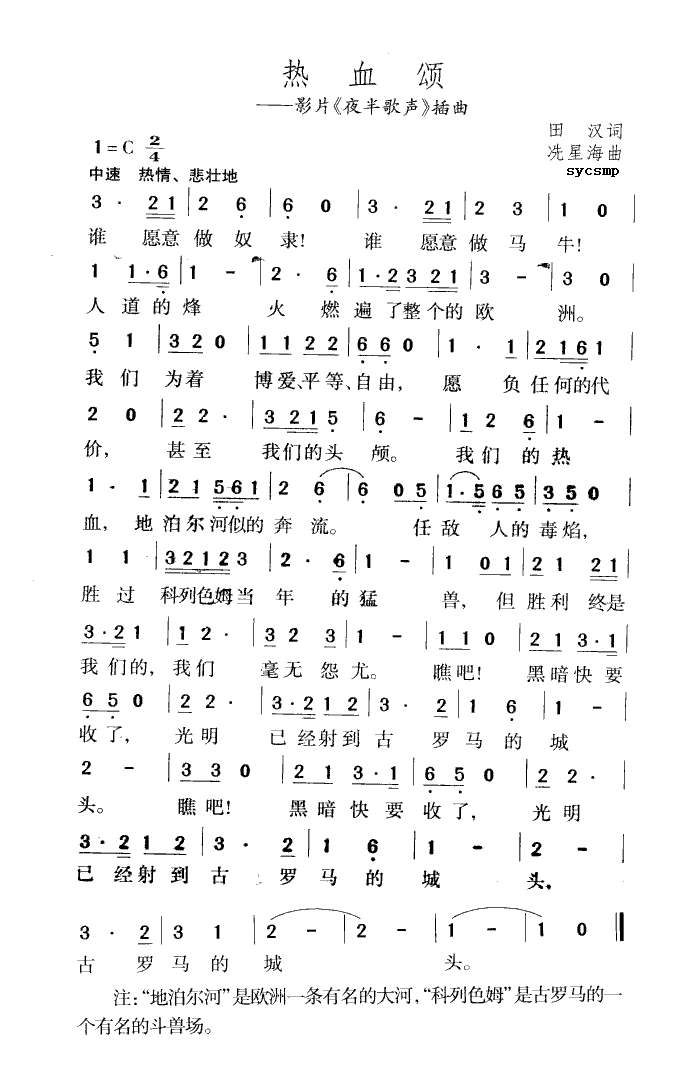 热血颂
——影片《夜半歌声》插曲
田汉词
冼星海曲
sycsmp
1=C 2/4
中速 热情、悲壮地
3 · 2 1 | 2 6 | 6 0 | 3 · 2 1 | 2 3 | 1 0 |
谁 愿意做奴 隶! 谁 愿意做马 牛!
1 1·6 | 1 - | 2 · 6 | 1·2 3 2 1 | 3 - | 3 0 |
人道的烽 火 燃遍了整个的欧 洲。
5 1 | 3 2 0 | 1 1 2 2 | 6 6 0 | 1 · 1 | 2 1 6 1 |
我们 为着 博爱、平等、自由, 愿 负任何的代
2 0 | 2 2 · | 3 2 1 5 | 6 - | 1 2 6 | 1 - |
价, 甚至 我们的头 颅。 我们的热
1 · 1 | 2 1 5 6 1 | 2 6 | 6 0 5 | 1·5 6 5 | 3 5 0 |
血, 地泊尔河似的奔流。 任敌人的毒焰,
1 1 | 3 2 1 2 3 | 2 · 6 | 1 - | 1 0 1 | 2 1 2 1 |
胜过 科列色姆当年 的猛 兽, 但胜利终是
3·2 1 | 1 2 · | 3 2 3 | 1 - | 1 1 0 | 2 1 3·1 |
我们的, 我们 毫无怨尤。 瞧吧! 黑暗快要
6 5 0 | 2 2 · | 3·2 1 2 | 3 · 2 | 1 6 | 1 - |
收了, 光明 已经射到古 罗马的城
2 - | 3 3 0 | 2 1 3·1 | 6 5 0 | 2 2 · |
头。 瞧吧! 黑暗快要收了, 光明
3·2 1 2 | 3 · 2 | 1 6 | 1 - | 2 - |
已经射到古 罗马的城 头,
3 · 2 | 3 1 | 2 - | 2 - | 1 - | 1 0 ‖
古 罗马的城 头。
注:“地泊尔河”是欧洲一条有名的大河,“科列色姆”是古罗马的一
个有名的斗兽场。